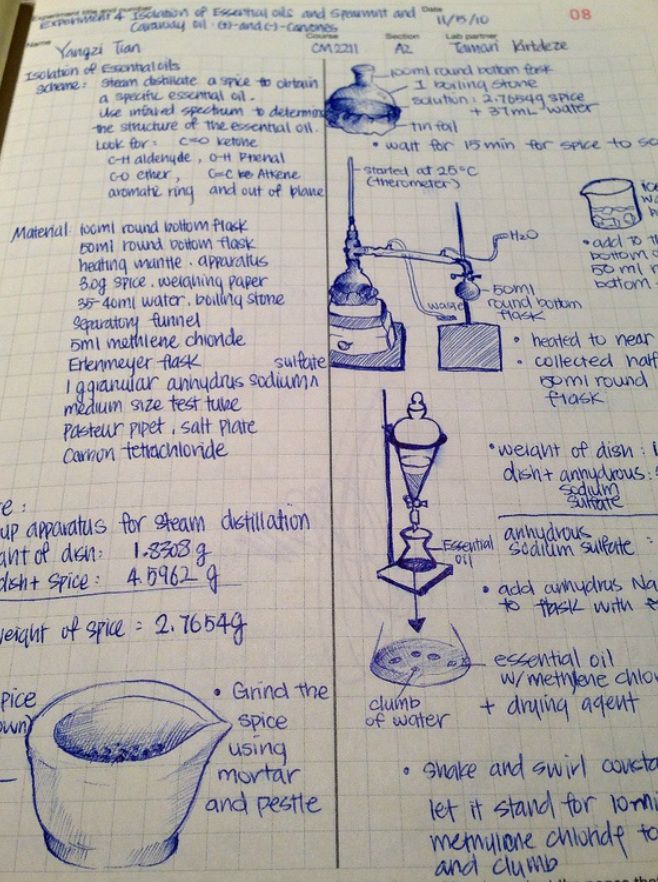 Experiment title and number
Experiment 4 Isolation of Essential oils and Spearmint and
Caraway oil: (+)-and (-)-Carvones
Date
11/15/10
08
Name
Yangzi Tian
Course
CM2211
Section
A2
Lab partner
Tamari Kirtdeze
Isolation of Essential oils
scheme: Steam distillate a spice to obtain
a specific essential oil.
Use infared spectrum to determine
the structure of the essential oil.
Look for: C=O ketone
C-H aldehyde, O-H Phenol
C-O ether, C=C Alkene
aromatic ring and out of plane
Material: 100ml round bottom flask
50ml round bottom flask
heating mantle. apparatus
3.0g spice. weighing paper
35-40ml water. boiling stone
Separatory funnel
5ml methlene chloride
Erlenmeyer flask
1g granular anhydrus sodium ^ sulfate
medium size test tube
Pasteur pipet, salt plate
Carbon tetrachloride
re:
up apparatus for steam distillation
ght of dish: 1.8308 g
dish + spice: 4.5962 g
weight of spice = 2.7654g
spice
own)
• Grind the
spice
using
mortar
and pestle
100ml round bottom flask
1 boiling stone
solution: 2.7654g spice
+ 37mL water
tin foil
• wait for 15 min for spice to so
started at 25°C
(thermometer)
H2O
waste
50ml
round bottom
flask
ice
wa
• add to th
bottom
50 ml r
bottom
• heated to near
• collected half
50ml round
flask
• weight of dish:
dish + anhydrous:
sodium
sulfate
anhydrous
sodium sulfate:
Essential
oil
• add anhydrus Na
to flask with
essential oil
w/methlene chlor
+ drying agent
clumb
of water
• shake and swirl consta
let it stand for 10mi
methylene chloride to
and clumb